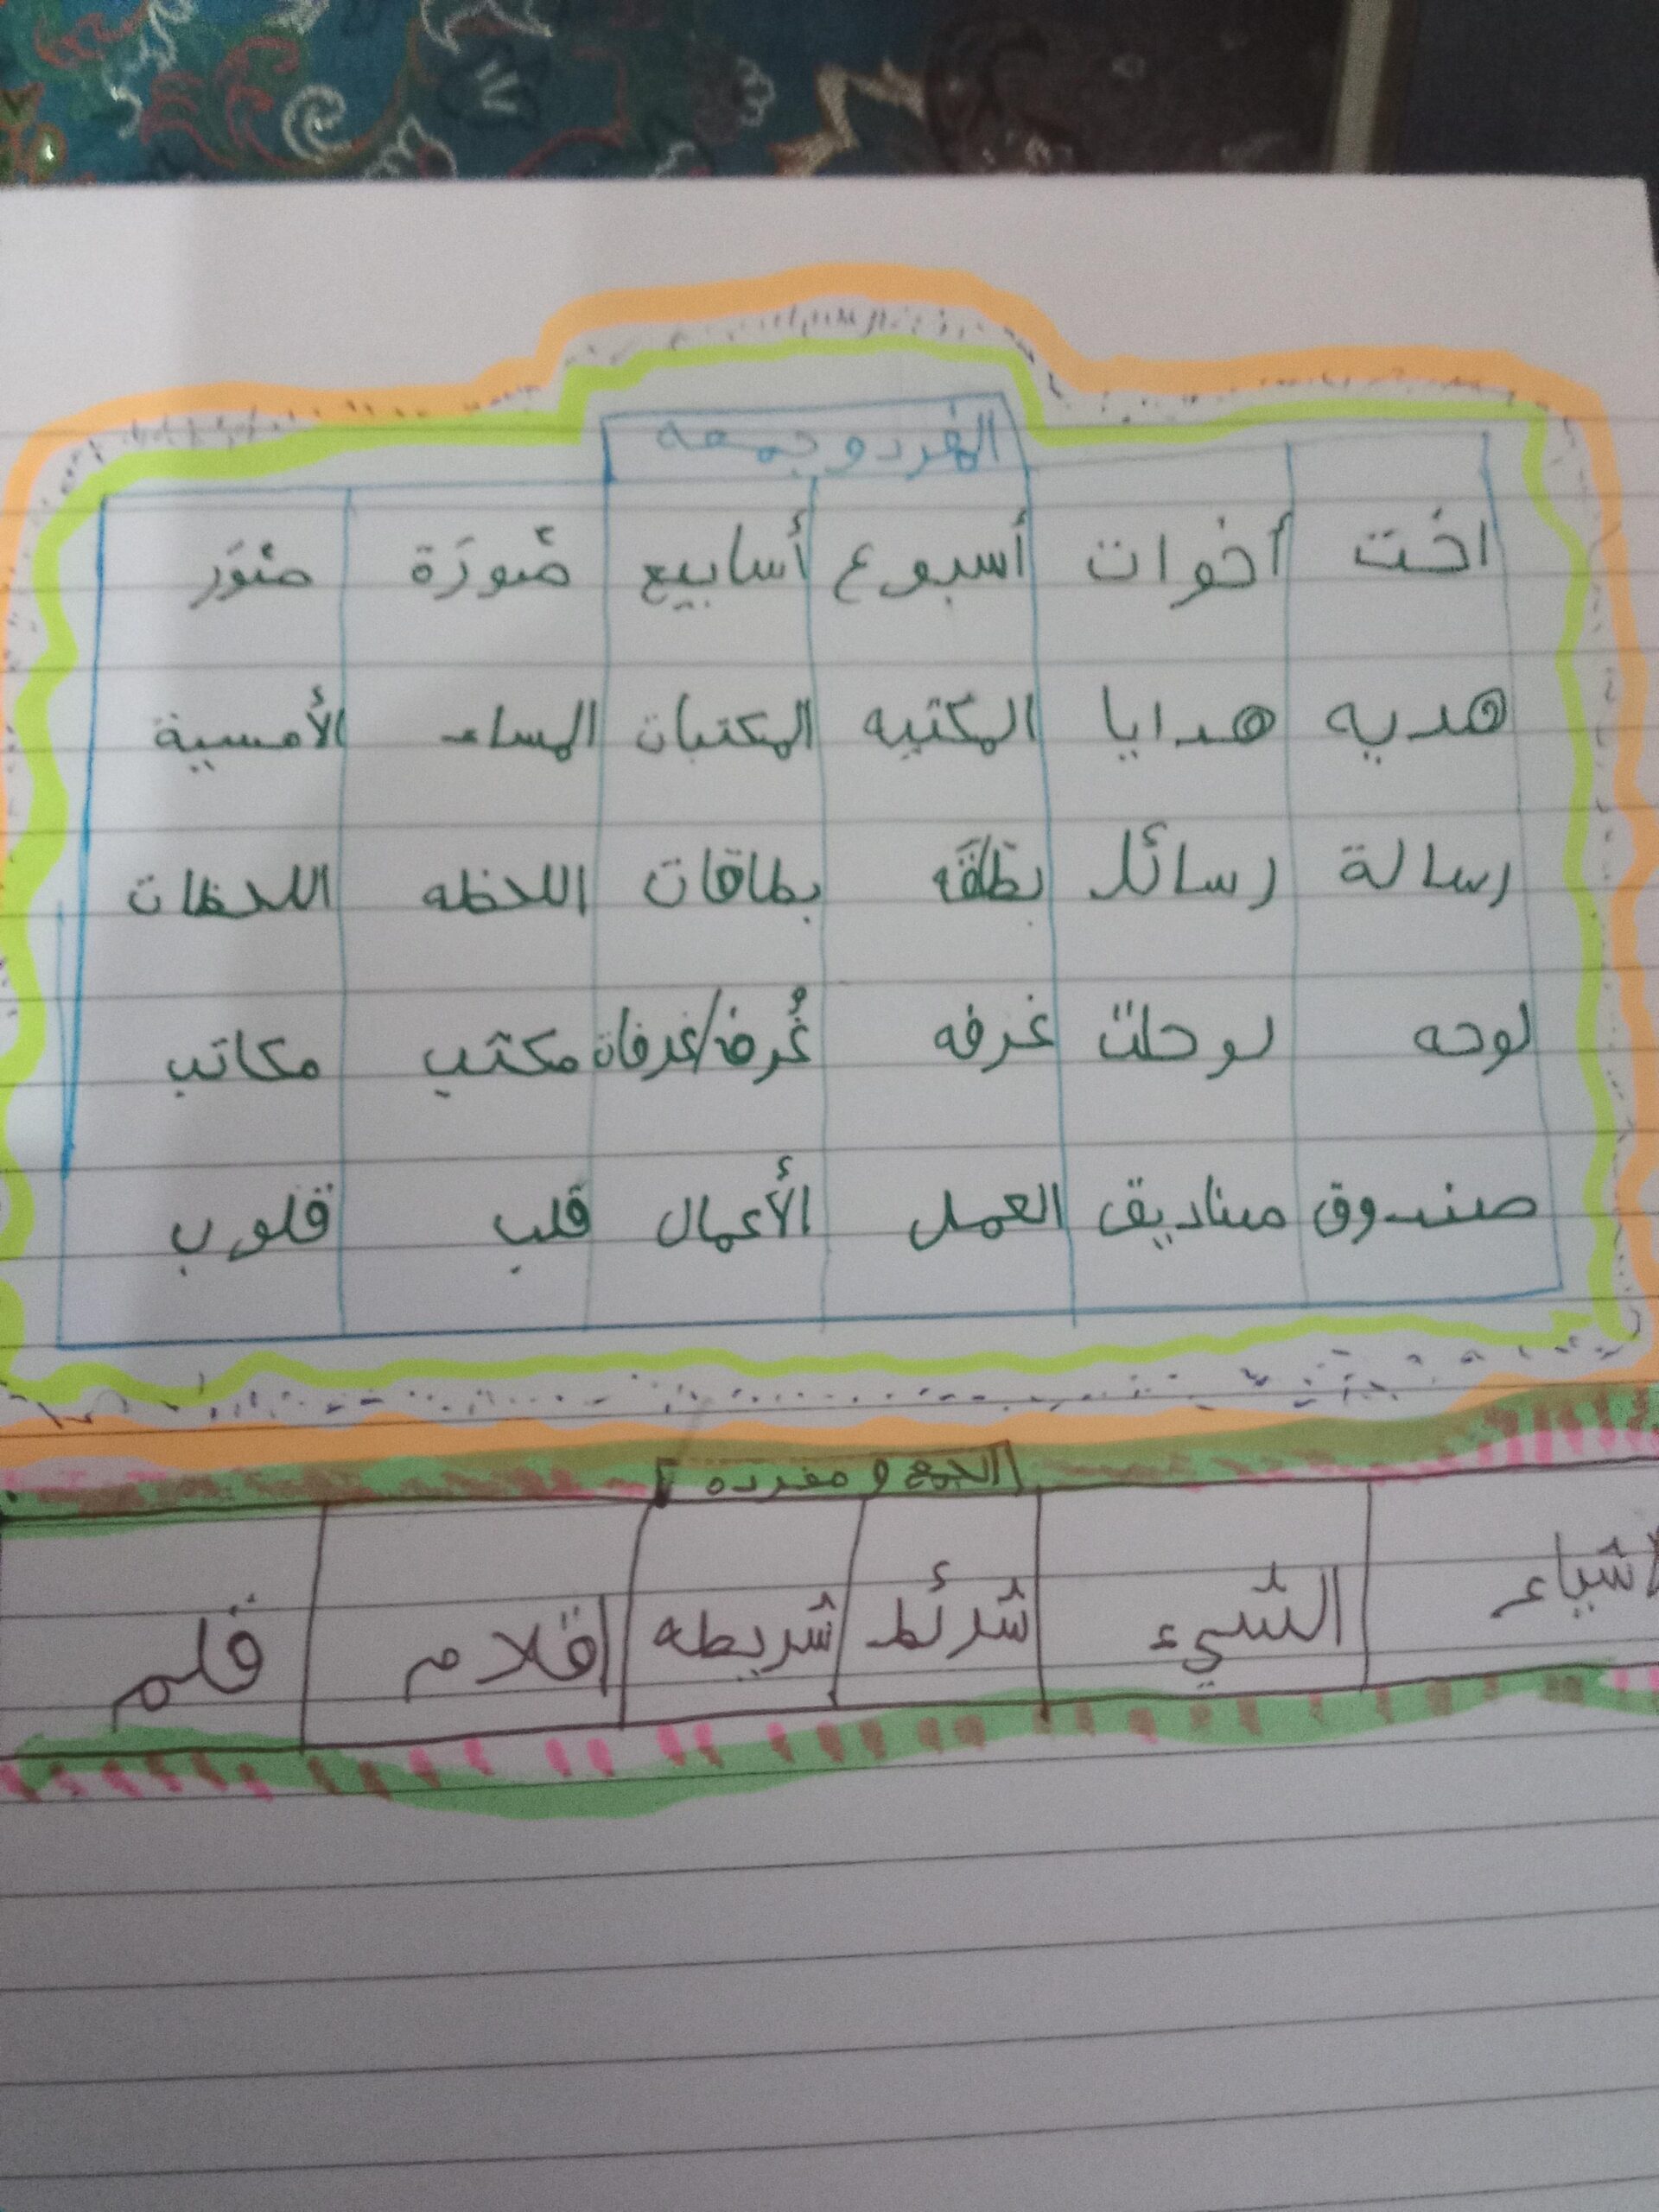 المفرد و جمعه
اخت أخوات أسبوع أسابيع صُورَة صُوَر
هديه هدايا المكتبه المكتبات المساء الأمسية
رسالة رسائل بطاقَه بطاقات اللحظه اللحظات
لوحه لوحات غرفه غُرف/غرفات مكتب مكاتب
صندوق صناديق العمل الأعمال قلب قلوب
الجمع و مفرده
اشياء الشيء شرائط شريطه اقلام قلم